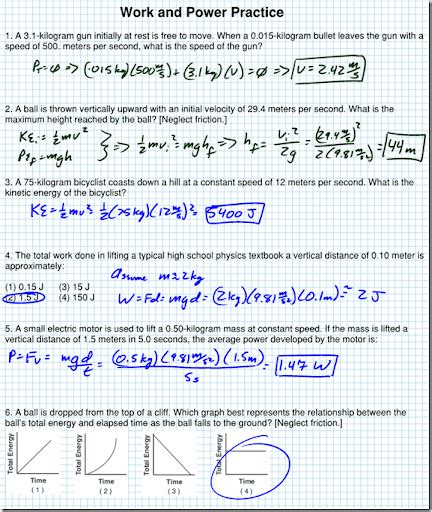 Work and Power Practice
1. A 3.1-kilogram gun initially at rest is free to move. When a 0.015-kilogram bullet leaves the gun with a
speed of 500. meters per second, what is the speed of the gun?
P_T = 0 => (.015 kg)(500 m/s) + (3.1 kg)(v) = 0 => v = 2.42 m/s
2. A ball is thrown vertically upward with an initial velocity of 29.4 meters per second. What is the
maximum height reached by the ball? [Neglect friction.]
KE_i = ½mv²
PE_f = mgh
=> ½mv_i² = mgh_f => h_f = v_i²/2g = (29.4 m/s)²/2(9.81 m/s²) = 44 m
3. A 75-kilogram bicyclist coasts down a hill at a constant speed of 12 meters per second. What is the
kinetic energy of the bicyclist?
KE = ½mv² = ½(75 kg)(12 m/s)² = 5400 J
4. The total work done in lifting a typical high school physics textbook a vertical distance of 0.10 meter is
approximately:
Assume m ≈ 2 kg
(1) 0.15 J (3) 15 J
(2) 1.5 J (4) 150 J
W = Fd = mgd = (2 kg)(9.81 m/s²)(0.1m) ≈ 2 J
5. A small electric motor is used to lift a 0.50-kilogram mass at constant speed. If the mass is lifted a
vertical distance of 1.5 meters in 5.0 seconds, the average power developed by the motor is:
P = Fv = mgd/t = (0.5 kg)(9.81 m/s²)(1.5m)/5s = 1.47 W
6. A ball is dropped from the top of a cliff. Which graph best represents the relationship between the
ball's total energy and elapsed time as the ball falls to the ground? [Neglect friction.]
Total Energy Total Energy Total Energy Total Energy
Time Time Time Time
(1) (2) (3) (4)